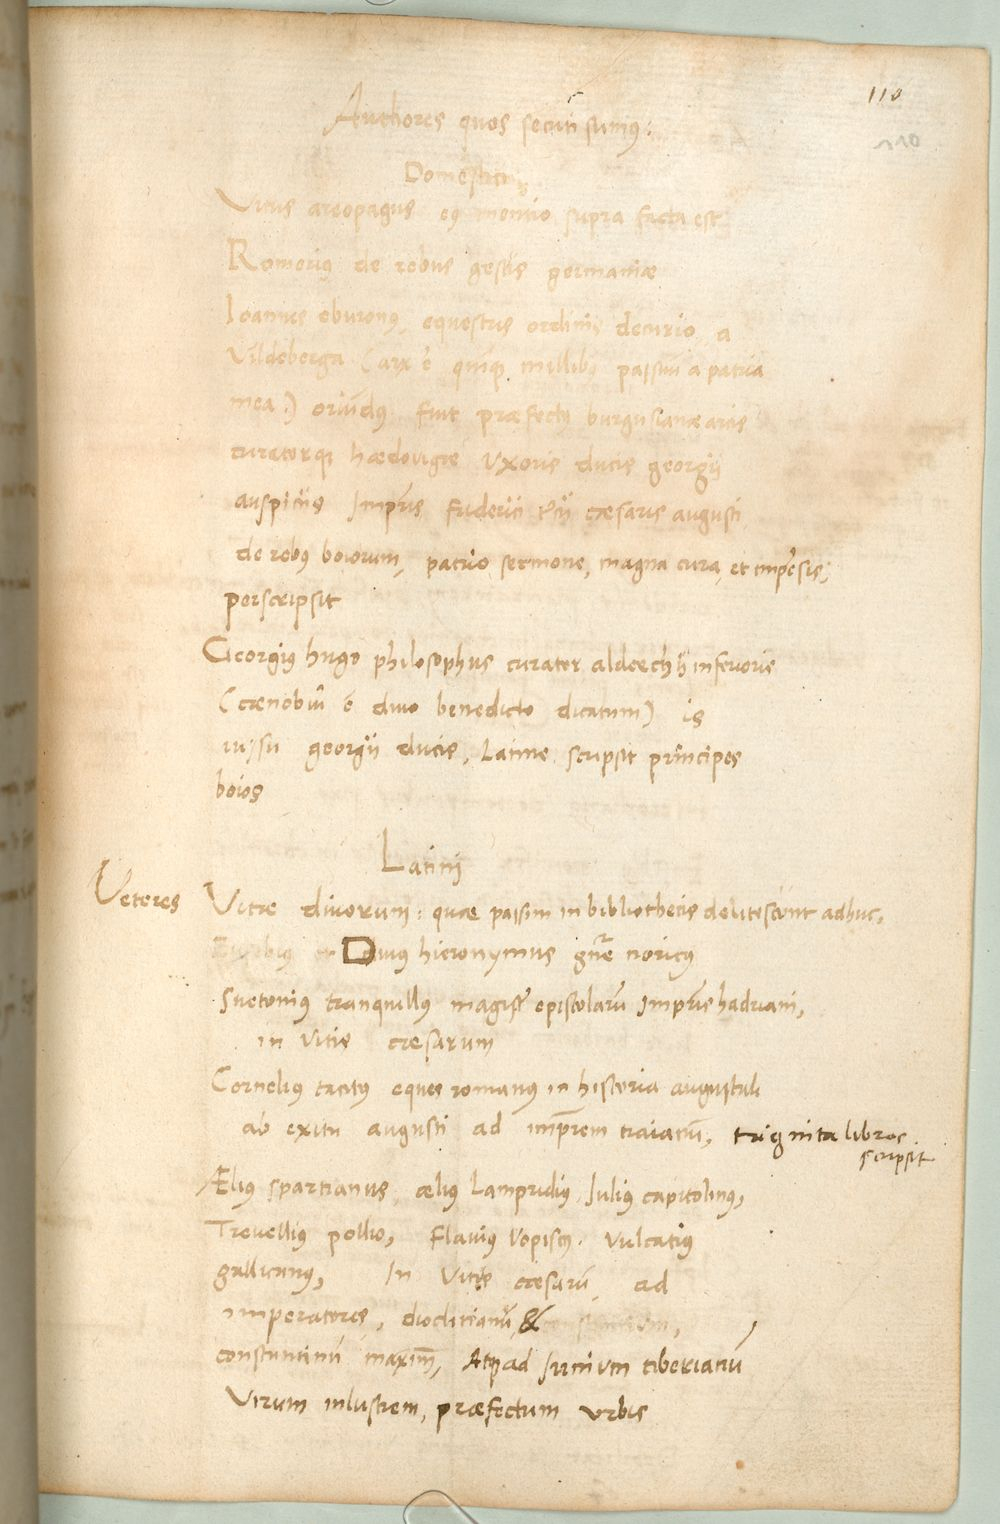 110
110
Authores quos secuti sumus:
Domestici
Vitus areopagus eius mentio supra facta est
Romerius de rebus gestis germaniae
Ioannes eburonus, equestris ordinis decurio, a
Vildeberga (arx ē quinque millibus passuum a patria
mea:) oriūdus fuit præfectus burgusianæ arcis
curatorque hædovigæ uxoris ducis georgii
auspitiis Imprīs friderici tertii cæsaris augusti
de rebus boiorum, patrio sermone, magna cura, et impēsis,
perscripsit
Georgius hugo philosophus curator alderspachii inferioris
(cænobiū ē divo benedicto dicatum) is
iussu georgii ducis, Latine scripsit principes
boios
Latini
Veteres Vitæ divorum: quæ passim in bibliothecis delitescunt adhuc,
Divus hieronymus gn̄re noricus
Suetonius tranquillus magist̄ epistolarū Imprīs hadriani,
in vitis cæsarum
Cornelius tacitus eques romanus in historia augustali
ab exitu augusti ad imp̄rem traianū, trignita libros
scripsit
Ælius spartianus ælius Lampridius Iulius capitolinus,
Trevellius pollio, Flavius Vopiscus. Vulcatius
gallicanus, In Vitis cæsarū, ad
imperatores, dioclitianū, &
constantinū maximū, Atque ad Iunium tiberianū
Virum inlustrem, præfectum urbis